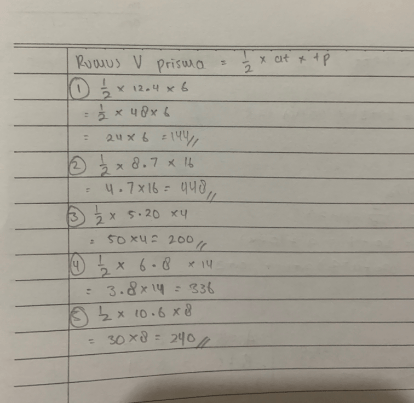 Rumus V prisma = 1/2 × at × tp
① 1/2 × 12.4 × 6
= 1/2 × 48 × 6
= 24 × 6 = 144//
② 1/2 × 8.7 × 16
= 4.7 × 16 = 448//
③ 1/2 × 5.20 × 4
= 50 × 4 = 200//
④ 1/2 × 6.8 × 14
= 3.8 × 14 = 336
⑤ 1/2 × 10.6 × 8
= 30 × 8 = 240//